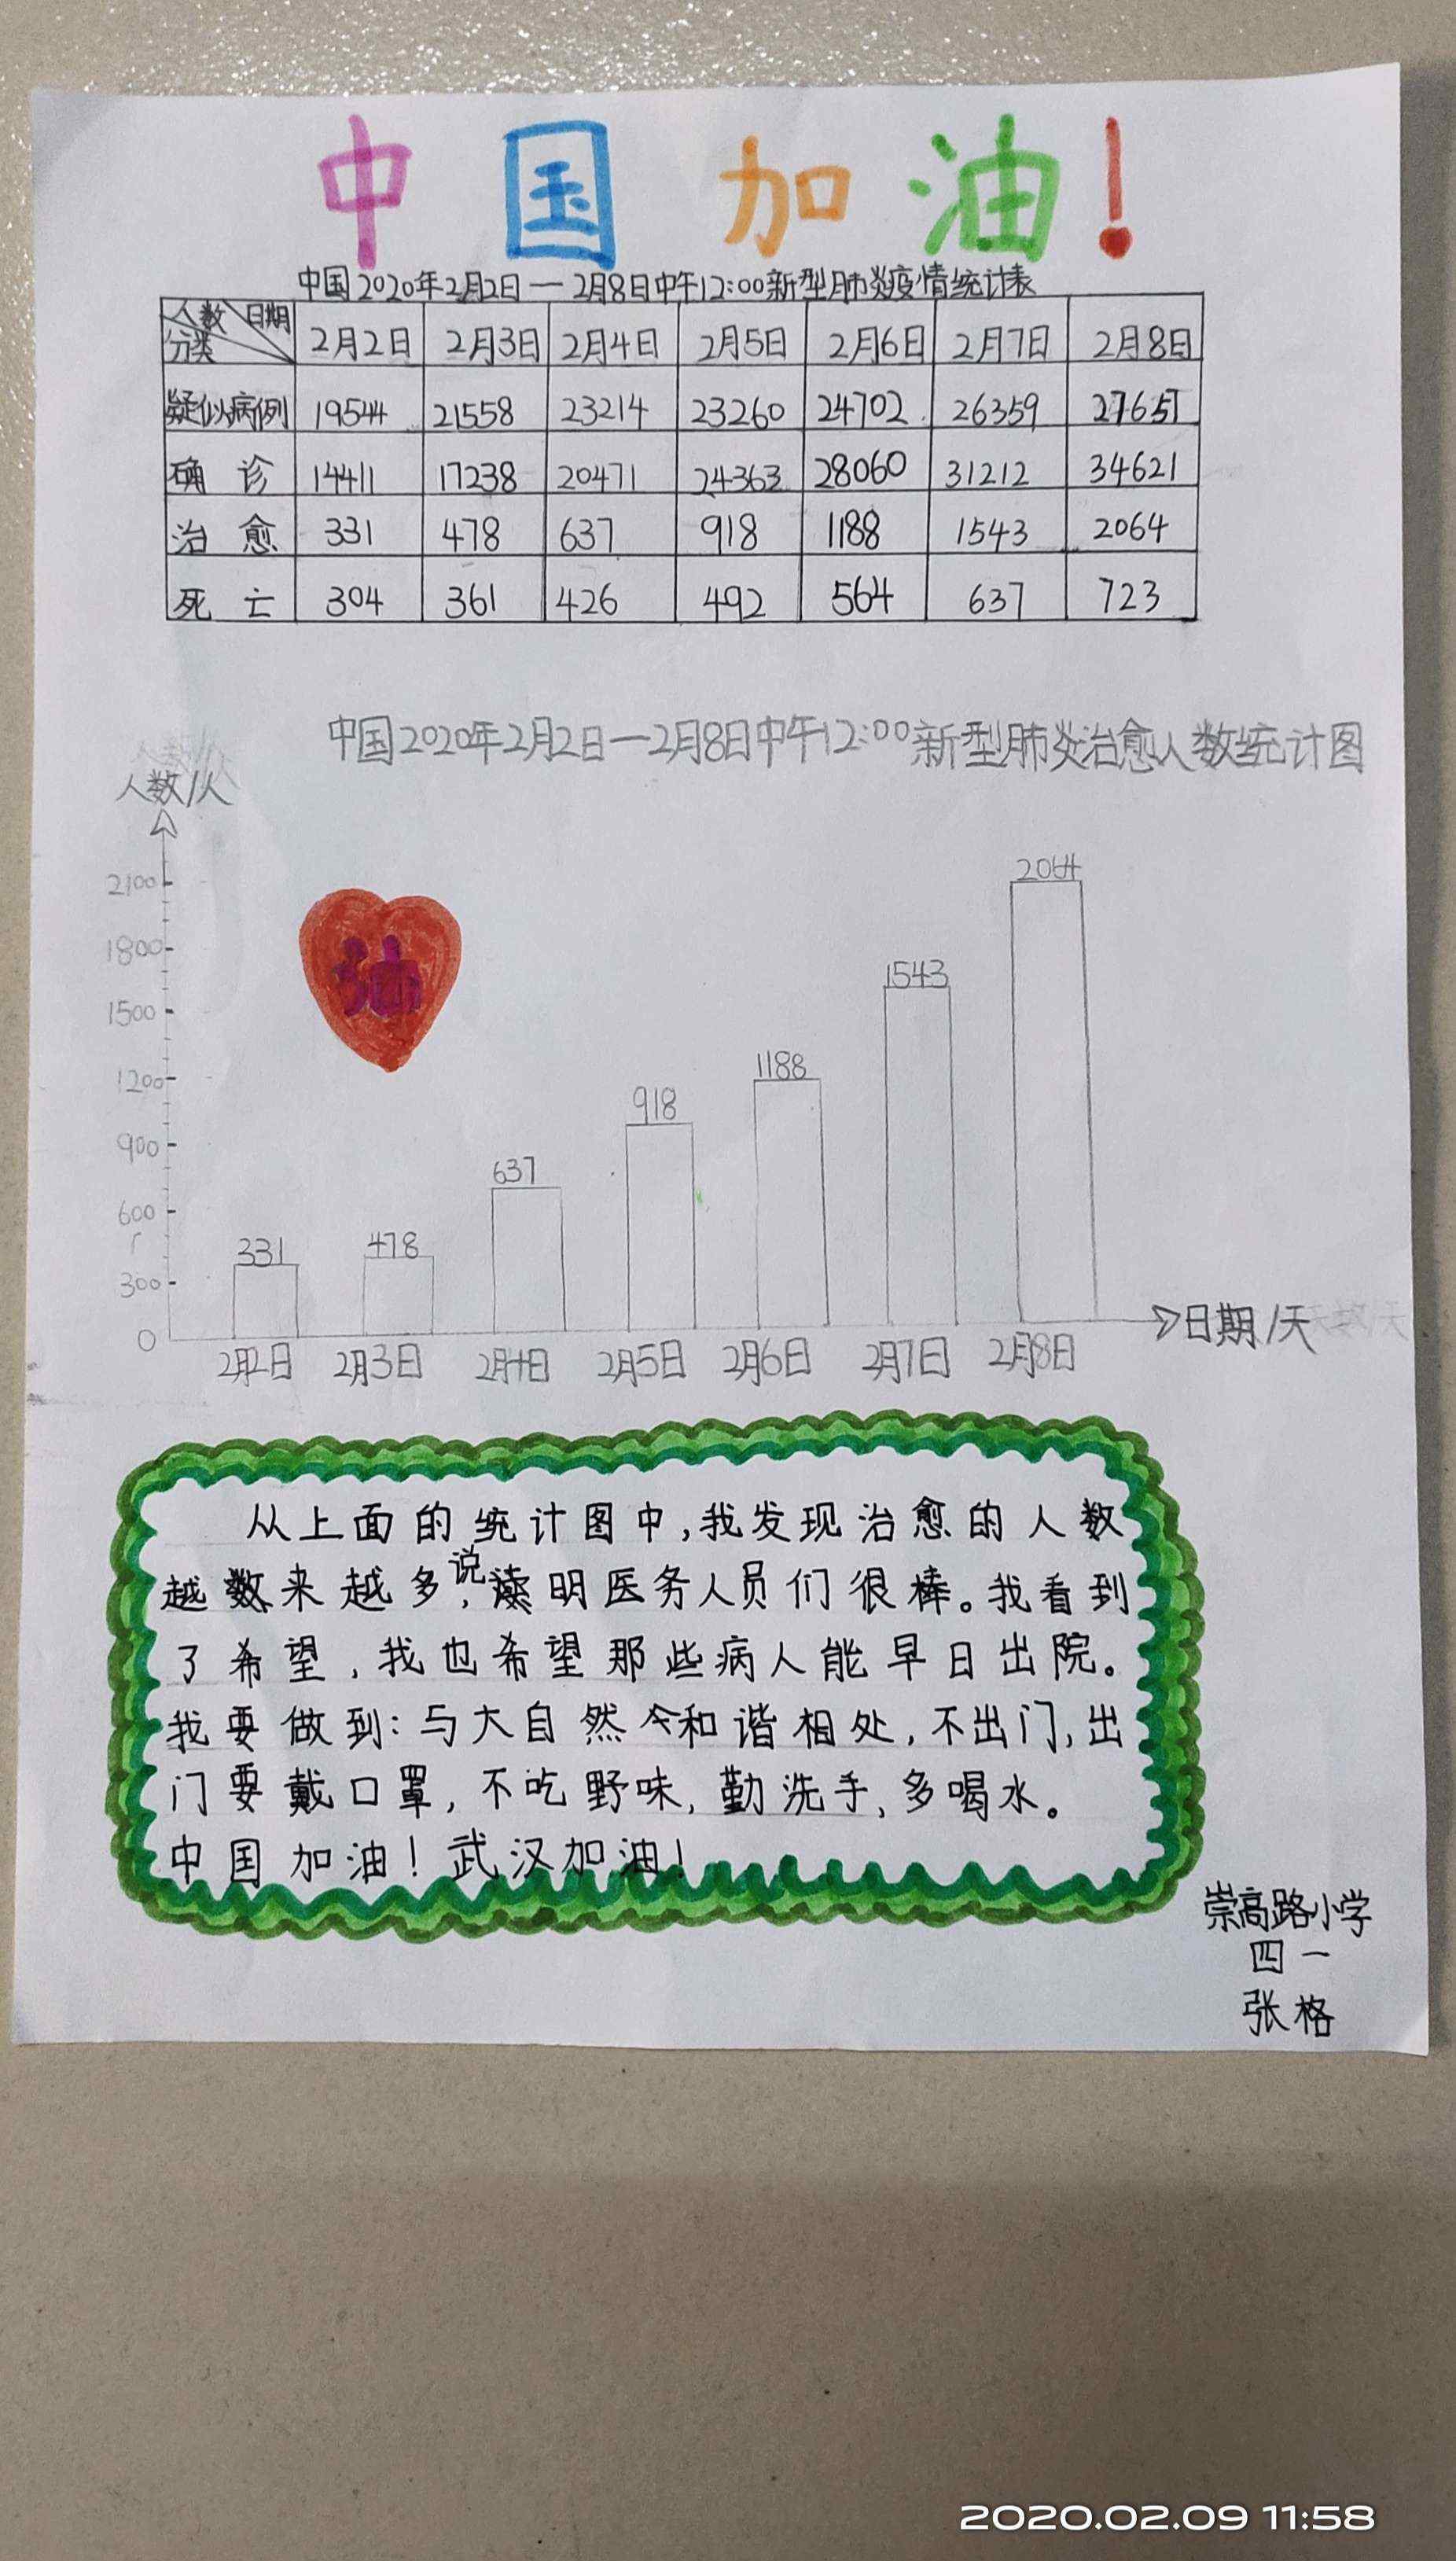 中国加油!
中国2020年2月2日—2月8日中午12:00新型肺炎疫情统计表
人数 日期 分类 2月2日 2月3日 2月4日 2月5日 2月6日 2月7日 2月8日
疑似病例 19544 21558 23214 23260 24702 26359 27657
确诊 14411 17238 20471 24363 28060 31212 34621
治愈 331 478 637 918 1188 1543 2064
死亡 304 361 426 492 564 637 723
中国2020年2月2日—2月8日中午12:00新型肺炎治愈人数统计图
人数/人
2100
1800
1500
1200
900
600
300
0
油
331 478 637 918 1188 1543 2064
2月2日 2月3日 2月4日 2月5日 2月6日 2月7日 2月8日
日期/天
从上面的统计图中,我发现治愈的人数
越来越多,说明医务人员们很棒。我看到
了希望,我也希望那些病人能早日出院。
我要做到:与大自然和谐相处,不出门,出
门要戴口罩,不吃野味,勤洗手,多喝水。
中国加油!武汉加油!
崇高路小学
四一
张格
2020.02.09 11:58